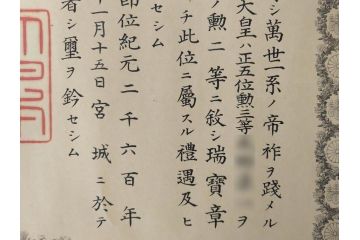 シ萬世一系ノ帝祚ヲ踐メル
大皇ハ正五位勲三等 ヲ
ノ勲二等ニ敍シ瑞寶章
チ此位ニ屬スル禮遇及ヒ
セシム
卽位紀元二千六百年
月十五日宮城ニ於テ
者シ璽ヲ鈐セシム